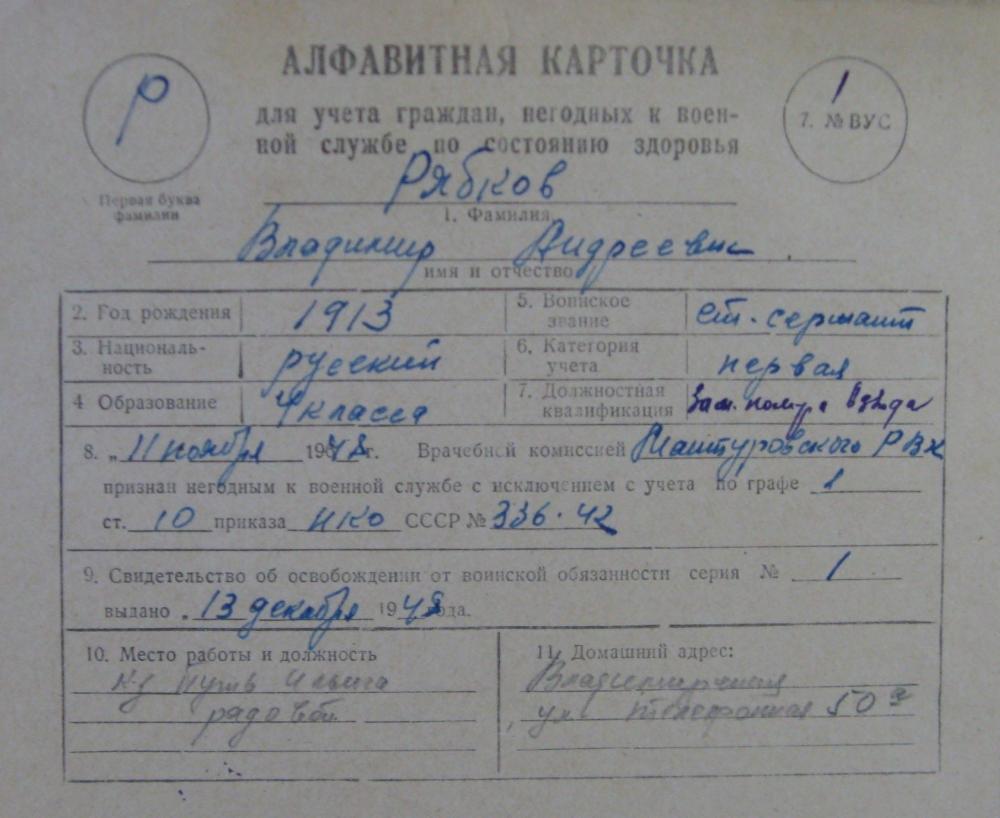 АЛФАВИТНАЯ КАРТОЧКА
Р
1
7. № ВУС
для учета граждан, негодных к воен-
ной службе по состоянию здоровья
Первая буква
фамилии
Рябков
1. Фамилия
Владимир Андреевич
имя и отчество
2. Год рождения 1913
5. Воинское звание ст. сержант
3. Националь-
ность русский
6. Категория
учета первая
4 Образование 4 класса
7. Должностная
квалификация Зам. ком-ра взвода
8. „ 11 ноября 1948 г. Врачебной комиссией РВК
признан негодным к военной службе с исключением с учета по графе 1
ст. 10 приказа НКО СССР № 336-42
9. Свидетельство об освобождении от воинской обязанности серия № 1
выдано 13 декабря 1948 года.
10. Место работы и должность
к-з Путь Ильича
рядовой
11. Домашний адрес:
ул. Телефонная 50 а